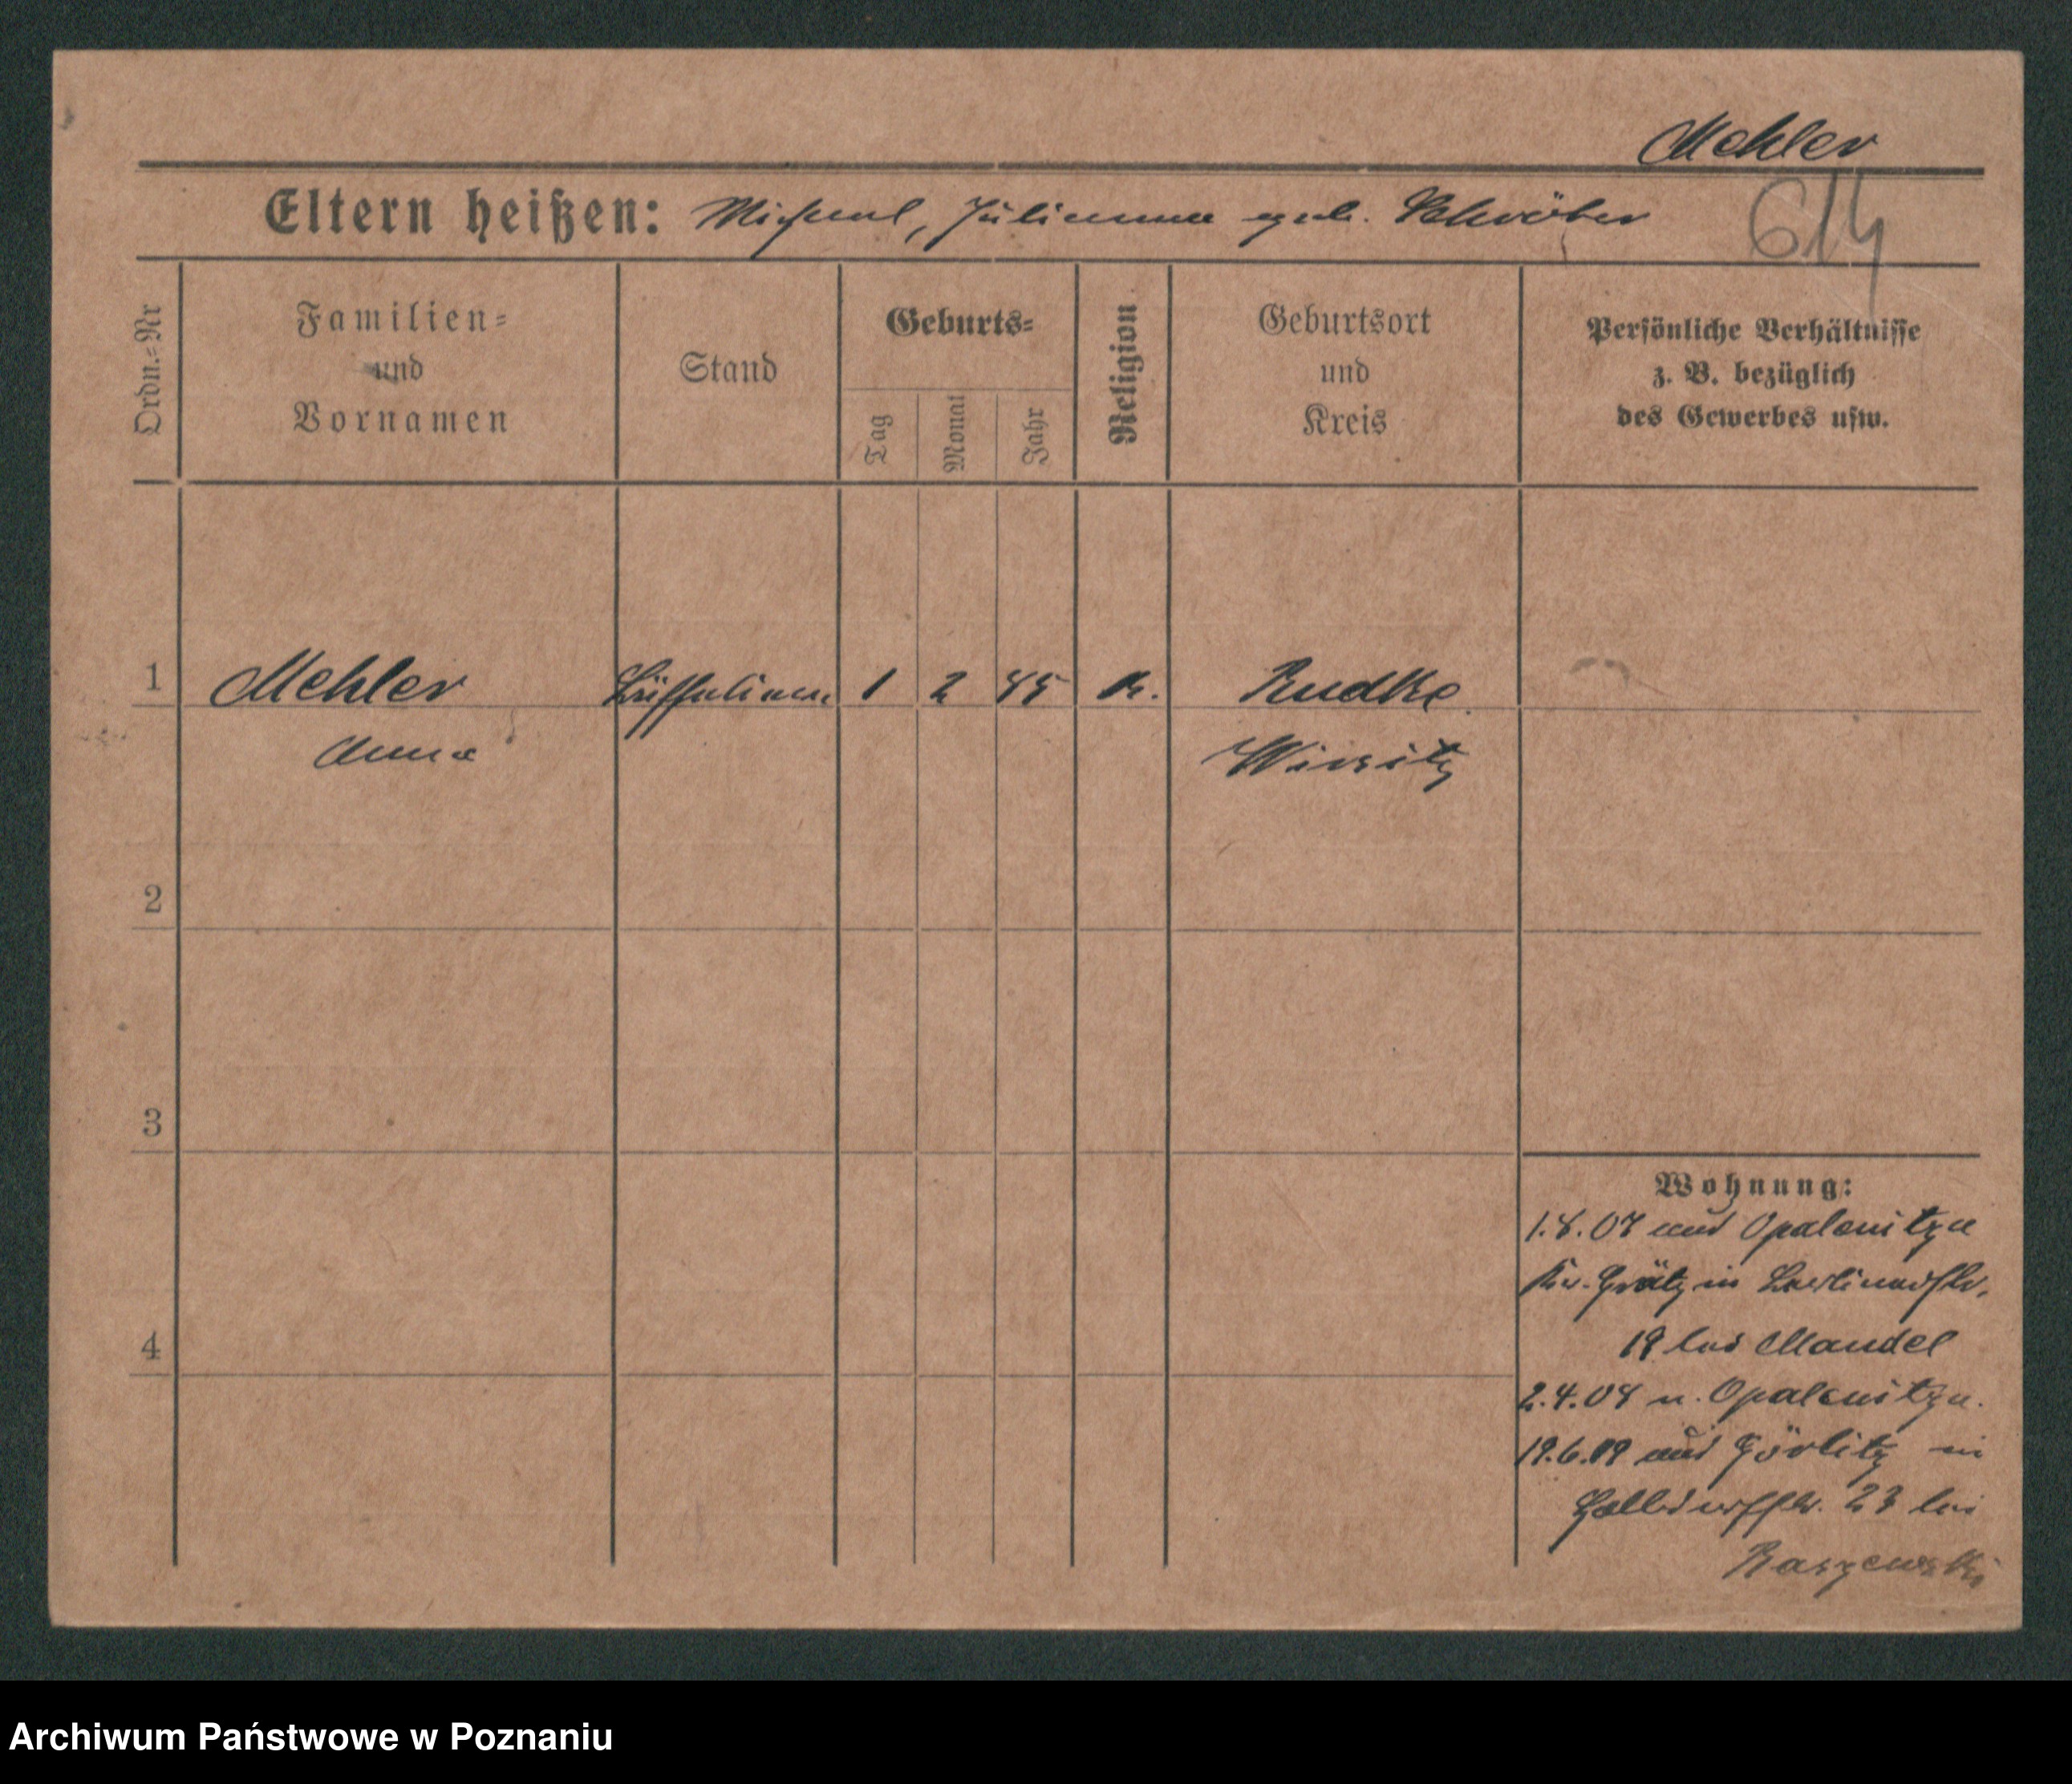 Mehler
Eltern heißen: Michael, Julianna geb. Schröber
614
Ordn.=Nr
Familien=
und
Vornamen
Stand
Geburts=
Tag
Monat
Jahr
Religion
Geburtsort
und
Kreis
Persönliche Verhältnisse
z. B. bezüglich
des Gewerbes usw.
1 Mehler 1 2 85 k. Rudke
Anna Wirsitz
2
3
4
Wohnung:
1.8.07 aus Opalenitza
Kr. Grätz in Berlinerstr.
19 bei Mandel
2.4.08 n. Opalenitza.
19.6.09 aus Görlitz in
23 bei
Raszewski
Archiwum Państwowe w Poznaniu